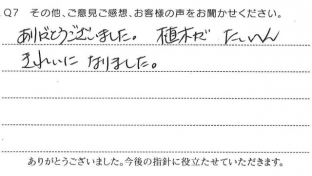 Q7 その他、ご意見ご感想、お客様の声をお聞かせください。
ありがとうございました。植木が たいへん
きれいに なりました。
ありがとうございました。今後の指針に役立たせていただきます。